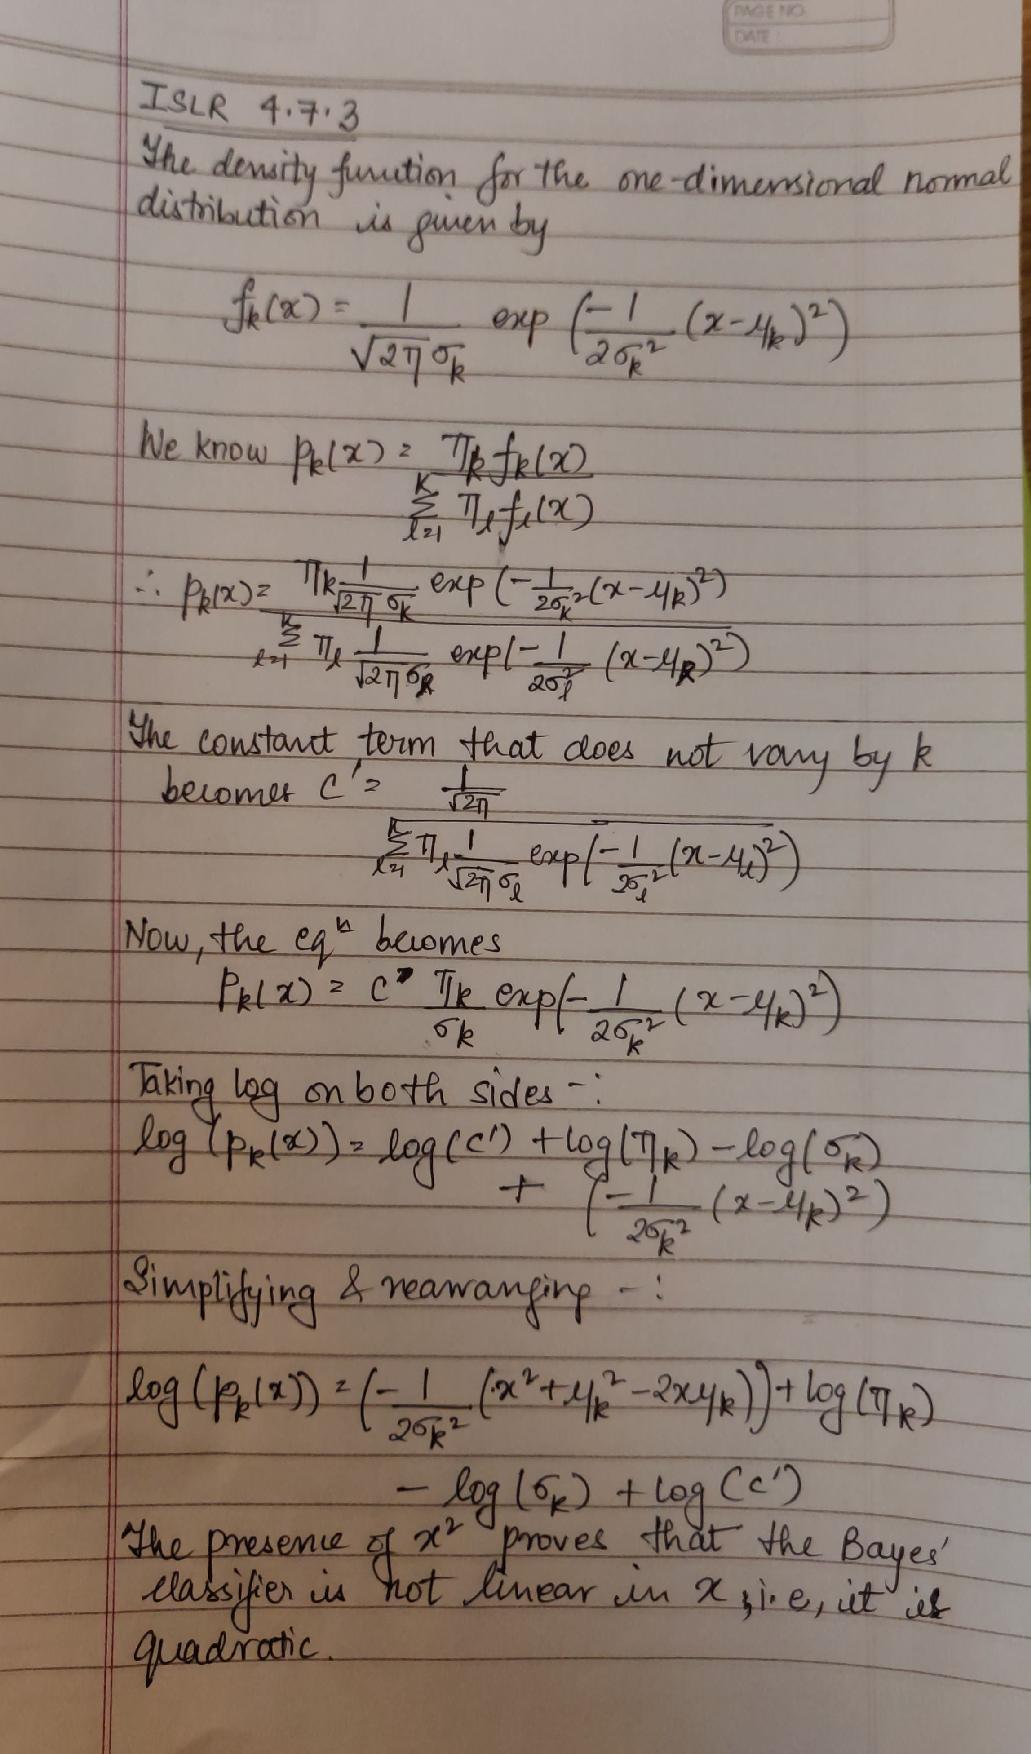 PAGE NO.
DATE :
ISLR 4.7.3
The density function for the one-dimensional normal
distribution is given by
fk(x) = 1/(√2π σk) exp (-1/(2σk²) (x-μk)²)
We know pk(x) = πk fk(x) / Σ_{l=1}^{K} πl fl(x)
∴ pk(x) = πk 1/(√2π σk) exp (-1/(2σk²) (x-μk)²) / Σ_{l=1}^{K} πl 1/(√2π σl) exp(-1/(2σl²) (x-μl)²)
The constant term that does not vary by k
becomes C' = (1/√2π) / Σ_{l=1}^{K} πl 1/(√2π σl) exp(-1/(2σl²) (x-μl)²)
Now, the eqⁿ becomes
Pk(x) = C' πk/σk exp(-1/(2σk²) (x-μk)²)
Taking log on both sides -:
log (pk(x)) = log(C') + log(πk) - log(σk)
+ (-1/(2σk²) (x-μk)²)
Simplifying & rearranging -:
log (pk(x)) = (-1/(2σk²) (x²+μk²-2xμk)) + log(πk)
- log(σk) + log(C')
The presence of x² proves that the Bayes'
classifier is not linear in x, i.e, it is
quadratic.